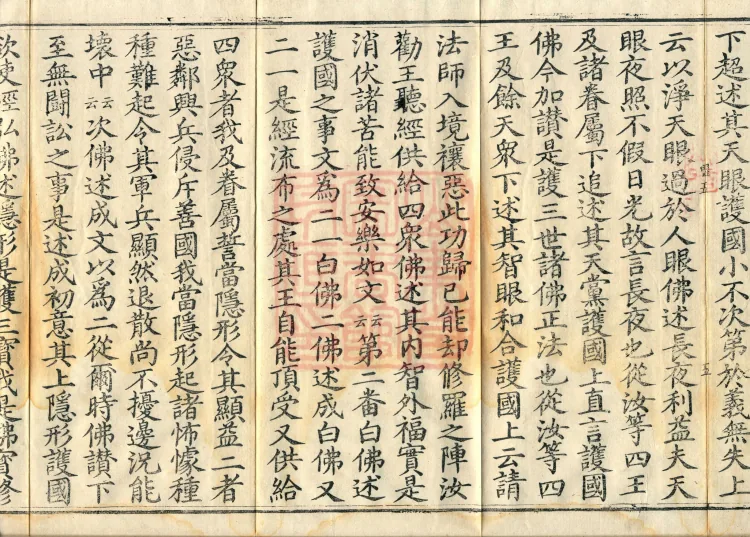 下超述其天眼護國小不次第於義無失上
云以淨天眼過於人眼佛述長夜利益夫天
眼夜照不假日光故言長夜也從汝等四王
及諸眷屬下追述其天黨護國上直言護國
佛今加讃是護三世諸佛正法也從汝等四
王及餘天衆下述其智眼和合護國上云請
法師入境禳惡此功歸己能却修羅之陣汝
勸王聽經供給四衆佛述其内智外福實是
消伏諸苦能致安樂如文云云第二番白佛述
護國之事文爲二一白佛二佛述成白佛又
二一是經流布之處其王自能頂受又供給
四衆者我及眷屬誓當隱形令其顯益二者
惡鄰興兵侵斥善國我當隱形起諸怖懅種
種難起令其軍兵顯然退散尚不擾邊況能
壞中云云次佛述成文以爲二從爾時佛讃下
至無闘訟之事是述成初意其上隱形護國
欲使經弘佛述隱形是護三寶我是佛寶修